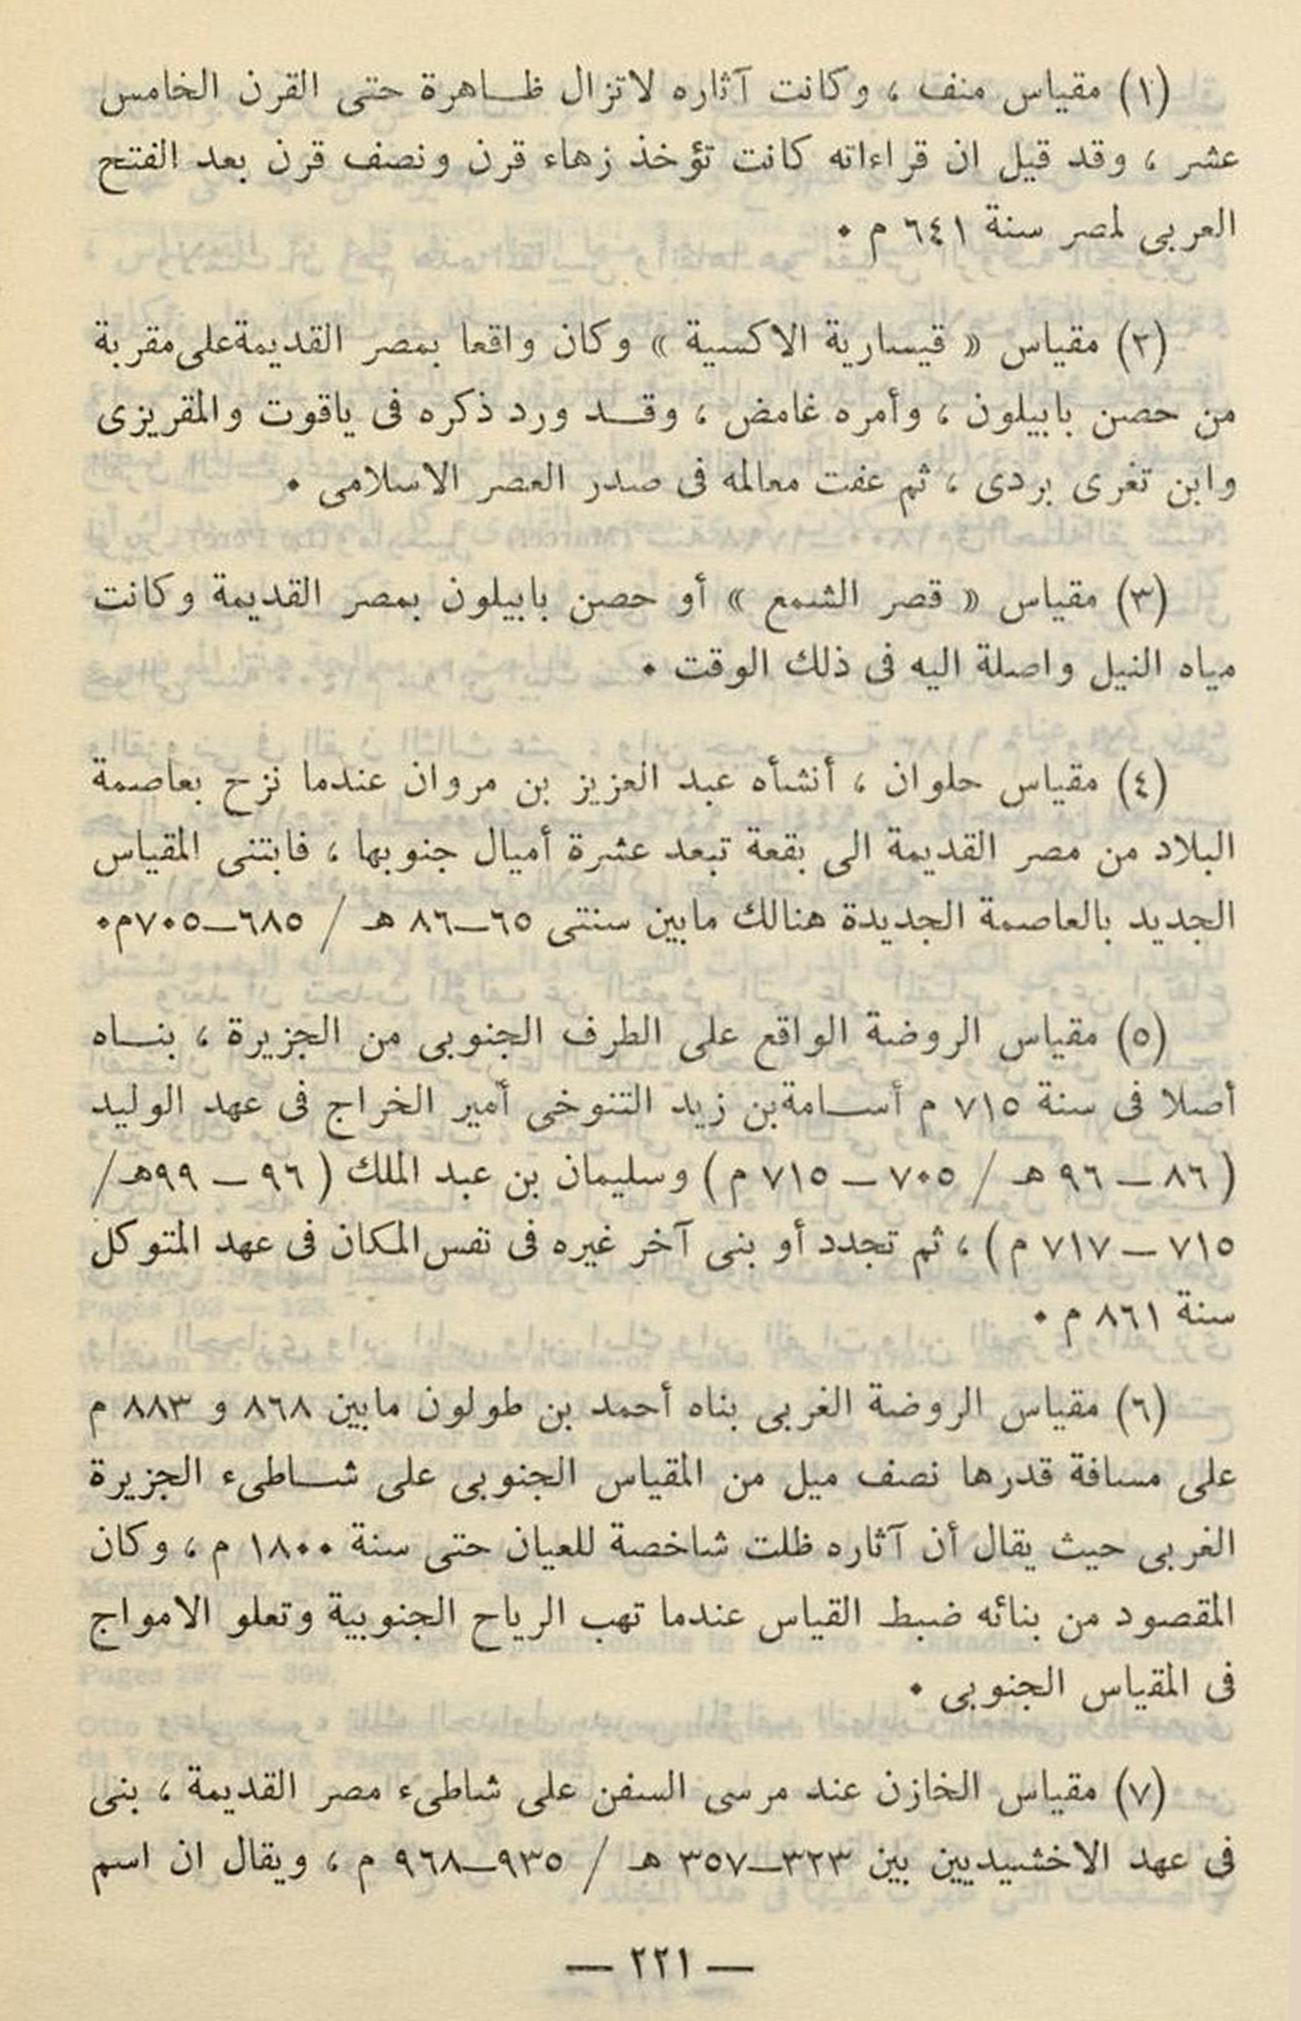 (١) مقياس منف ، وكانت آثاره لاتزال ظاهرة حتى القرن الخامس
عشر ، وقد قيل ان قراءاته كانت تؤخذ زهاء قرن ونصف قرن بعد الفتح
العربى لمصر سنة ٦٤١ م ٠
(٢) مقياس « قيسارية الاكسية » وكان واقعا بمصر القديمة على مقربة
من حصن بابيلون ، وأمره غامض ، وقد ورد ذكره فى ياقوت والمقريزى
وابن تغرى بردى ، ثم عفت معالمه فى صدر العصر الاسلامى ٠
(٣) مقياس « قصر الشمع » أو حصن بابيلون بمصر القديمة وكانت
مياه النيل واصلة اليه فى ذلك الوقت ٠
(٤) مقياس حلوان ، أنشأه عبد العزيز بن مروان عندما نزح بعاصمة
البلاد من مصر القديمة الى بقعة تبعد عشرة أميال جنوبها ، فابتنى المقياس
الجديد بالعاصمة الجديدة هنالك مابين سنتى ٦٥–٨٦ هـ / ٦٨٥–٧٠٥م٠
(٥) مقياس الروضة الواقع على الطرف الجنوبى من الجزيرة ، بناه
أصلا فى سنة ٧١٥ م أسامة بن زيد التنوخى أمير الخراج فى عهد الوليد
( ٨٦ – ٩٦ هـ / ٧٠٥ – ٧١٥ م ) وسليمان بن عبد الملك ( ٩٦ – ٩٩هـ/
٧١٥ – ٧١٧ م ) ، ثم تجدد أو بنى آخر غيره فى نفس المكان فى عهد المتوكل
سنة ٨٦١ م ٠
(٦) مقياس الروضة الغربى بناه أحمد بن طولون مابين ٨٦٨ و ٨٨٣ م
على مسافة قدرها نصف ميل من المقياس الجنوبى على شاطىء الجزيرة
الغربى حيث يقال أن آثاره ظلت شاخصة للعيان حتى سنة ١٨٠٠ م ، وكان
المقصود من بنائه ضبط القياس عندما تهب الرياح الجنوبية وتعلو الامواج
فى المقياس الجنوبى ٠
(٧) مقياس الخازن عند مرسى السفن على شاطىء مصر القديمة ، بنى
فى عهد الاخشيديين بين ٣٢٣–٣٥٧ هـ / ٩٣٥–٩٦٨ م ، ويقال ان اسم
— ٢٢١ —